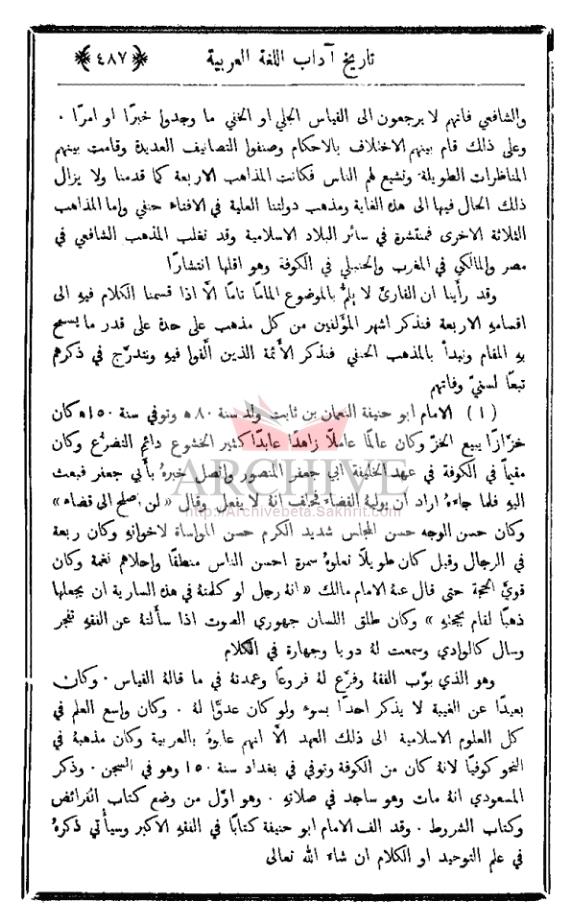 تاريخ آداب اللغة العربية ﴿٤٨٧﴾
والشافعي فانهم لا يرجعون الى القياس الجلي او الخفي ما وجدوا خبرًا او امرًا .
وعلى ذلك قام بينهم الاختلاف بالاحكام وصنفوا التصانيف العديدة وقامت بينهم
المناظرات الطويلة وتشيع لهم الناس فكانت المذاهب الاربعة كما قدمنا ولا يزال
ذلك الحال فيها الى هذه الغاية ومذهب دولتنا العلية في الافتاء حنفي واما المذاهب
الثلاثة الاخرى فمنتشرة في سائر البلاد الاسلامية وقد تغلب المذهب الشافعي في
مصر والمالكي في المغرب والحنبلي في الكوفة وهو اقلها انتشارًا
وقد رأينا ان القارئ لا يلمُّ بالموضوع المامًا تامًا الَّا اذا قسمنا الكلام فيهِ الى
اقسامهِ الاربعة فنذكر اشهر المؤلفين من كل مذهب على حدة على قدر ما يسمح
بهِ المقام ونبدأ بالمذهب الحنفي فنذكر الأئمة الذين الَّفوا فيهِ ونتدرّج في ذكرهم
تبعًا لسنيّ وفاتهم
(١) الامام ابو حنيفة النعمان بن ثابت ولد سنة ٨٠ﻫ وتوفي سنة ١٥٠ﻫ كان
خزّازًا يبيع الخزّ وكان عالمًا عاملًا زاهدًا عابدًا كثير الخشوع دائم التضرُّع وكان
مقيمًا في الكوفة في عهد الخليفة ابي جعفر المنصور واتصل خبرهُ بأبي جعفر فبعث
اليهِ فلما جاءهُ اراد ان يوليهُ القضاء فحلف انهُ لا يفعل وقال « لن اصلح الى قضاء »
وكان حسن الوجه حسن المجلس شديد الكرم حسن المواساة لاخوانهِ وكان ربعة
في الرجال وقيل كان طويلًا تعلوهُ سمرة احسن الناس منطقًا واحلاهم نغمة وكان
قويَّ الحجة حتى قال عنهُ الامام مالك « انهُ رجل لو كلمتهُ في هذه السارية ان يجعلها
ذهبًا لقام بحجتهِ » وكان طلق اللسان جهوري الصوت اذا سألتهُ عن الفقه تفجر
وسال كالوادي وسمعت لهُ دويا وجهارة في الكلام
وهو الذي بوّب الفقه وفرّع لهُ فروعًا وعمدتهُ في ما قالهُ القياس . وكان
بعيدًا عن الغيبة لا يذكر احدًا بسوء ولو كان عدوًّا لهُ . وكان واسع العلم في
كل العلوم الاسلامية الى ذلك العهد الَّا انهم عابوهُ بالعربية وكان مذهبهُ في
النحو كوفيًا لانهُ كان من الكوفة وتوفي في بغداد سنة ١٥٠ وهو في السجن . وذكر
المسعودي انهُ مات وهو ساجد في صلاتهِ . وهو اوّل من وضع كتاب الفرائض
وكتاب الشروط . وقد الف الامام ابو حنيفة كتابًا في الفقه الاكبر وسيأتي ذكرهُ
في علم التوحيد او الكلام ان شاء الله تعالى
ARCHIVE
http://Archivebeta.Sakhrit.com